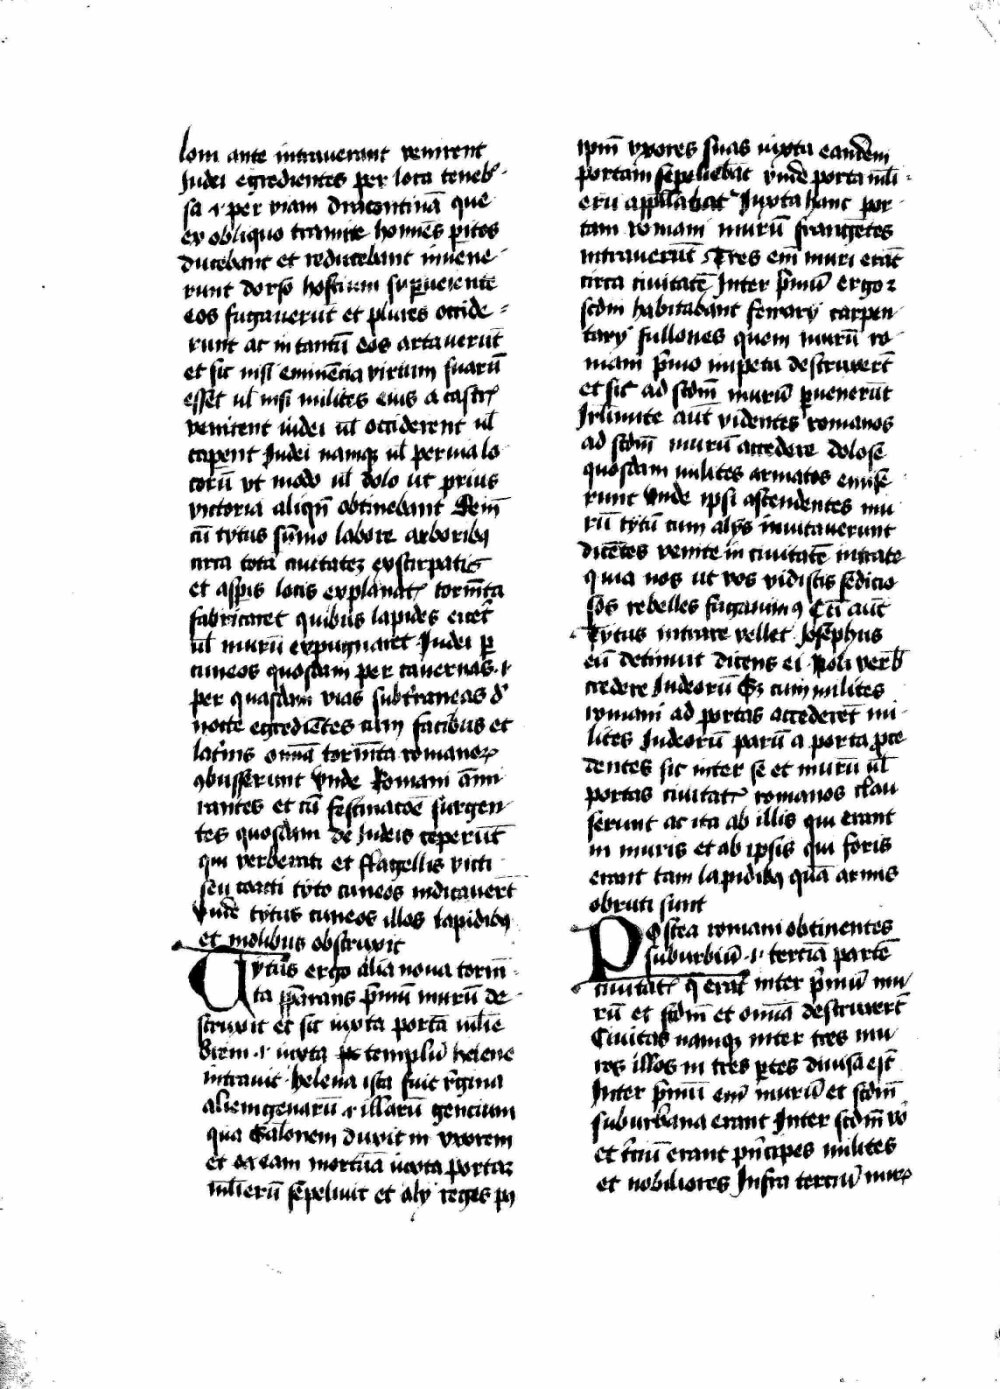 lom ante intrauerant venirent
Judei egredientes per loca teneb͛
sa ⁊ per viam dracontinā que
ex obliquo tramite homīes p̱itos
ducebant et reducebant inuene
runt dorso hostium sup̱ueniente
eos fugauerūt et plures occide
runt ac in tantū eos artauerūt
et sic nisi eminēcia virium suarū
esset ul̄ nisi milites eius a castr̄
venirent iudei ul̄ occiderent ul̄
caperent Judei namqꝫ ul̄ per ualo
torū vt modo ul̄ dolo ut prius
victoria aliqn̄ obtinebant Dem̄
cū tytus sūmo labore arboribꝫ
circa totā ciuitateꝫ exstirpatis
et asp̱is locis explanat͛ tormēta
fabricaret quibus lapides eicer̄t
ul̄ murū expugnaret Judei p̱
cuneos quosdam per cauernas ⁊
per quasdam vias subt͛raneas d͛
nocte egrediētes cum facibus et
lat͛nis omīa tormēta romanoꝝ
ꝯbusserunt Vnde Romani āmi
rantes et cū festinacōe surgen
tes quosdam de Judeis ceperūt
qui verberati et flagellis victi
seu coacti tyto cuneos indicauer̄t
Vnde tytus cuneos illos lapidibꝫ
et molibus obstruxit
Tytus ergo alia noua torm̄
ta p̄parans p̄mū murū de
struxit et sic iuxta portā mulie
brem ⁊ iuxta templū helene
intrauit helena ista fuit r͛gina
aliemgenarū ⁊ illarū gencium
qua Salonem duxit in vxorem
et eam mortuā iuxta portaꝫ
ml̄ierū sepeliuit et aly reges p̱
ip̄m vxores suas iuxta eandem
portam sepeliebāt vnde porta ml̄i
erū app̱llabat͛ Juxta hanc por
tam romani murū frangētes
intrauerūt Tres em̄ muri erāt
circa ciuitatē Inter p̄mū ergo ⁊
scd̄m habitabant ferrary carpen
tary fullones quem murū ro
mani p̄mo impetu destruxer̄t
et sic ad scd̄m murū p̱uenerūt
Jrl̄imite aut̄ videntes romanos
ad scd̄m murū accedere dolose
quosdam milites armatos emise
runt Vnde ipsi ascendentes mu
rū tytū cum alys inuitauerunt
dicētes venite in ciuitatē intrate
quia nos ut vos vidistis sedicio
sos rebelles fugauimꝰ Cū aūt
Tytus intrare vellet Josephus
eū detinuit dicens ei Noli verb͛
credere Judeorū Sꝫ cum milites
romani ad portas accederēt mi
lites Judeorū parū a porta p̱ce
dentes sic inter se et murū ul̄
portas ciuitat͛ romanos clau
serunt ac ita ab illis qui erant
in muris et ab ipsis qui foris
erant tam lapidibꝫ quā armis
obruti sunt
Postea romani obtinentes
suburbiū ⁊ terciā partē
ciuitat͛ q̄ erat inter p̄mū mu
rū et scd̄m et omīa destruxer̄t
Ciuitas namqꝫ inter tres mu
ros illos in tres p̱tes diuisa est
Inter p̄mū em̄ murū et scd̄m
suburbana erant Inter scd̄m vō
et t͛ciū erant p̄ncipes milites
et nobiliores Infra terciū murꝫ